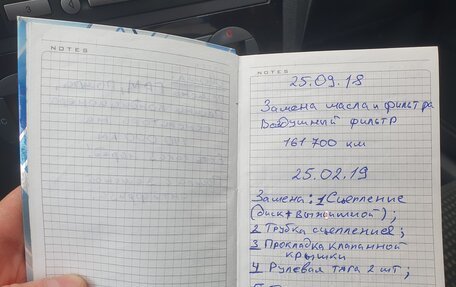 NOTES
NOTES
25.09.18
Замена масла и фильтра
Воздушный фильтр
161 700 км
25.02.19
Замена: 1 Сцепление
(диск + выжимной);
2 Трубка сцепления;
3 Прокладка клапанной
крышки
4 Рулевая тяга 2 шт;